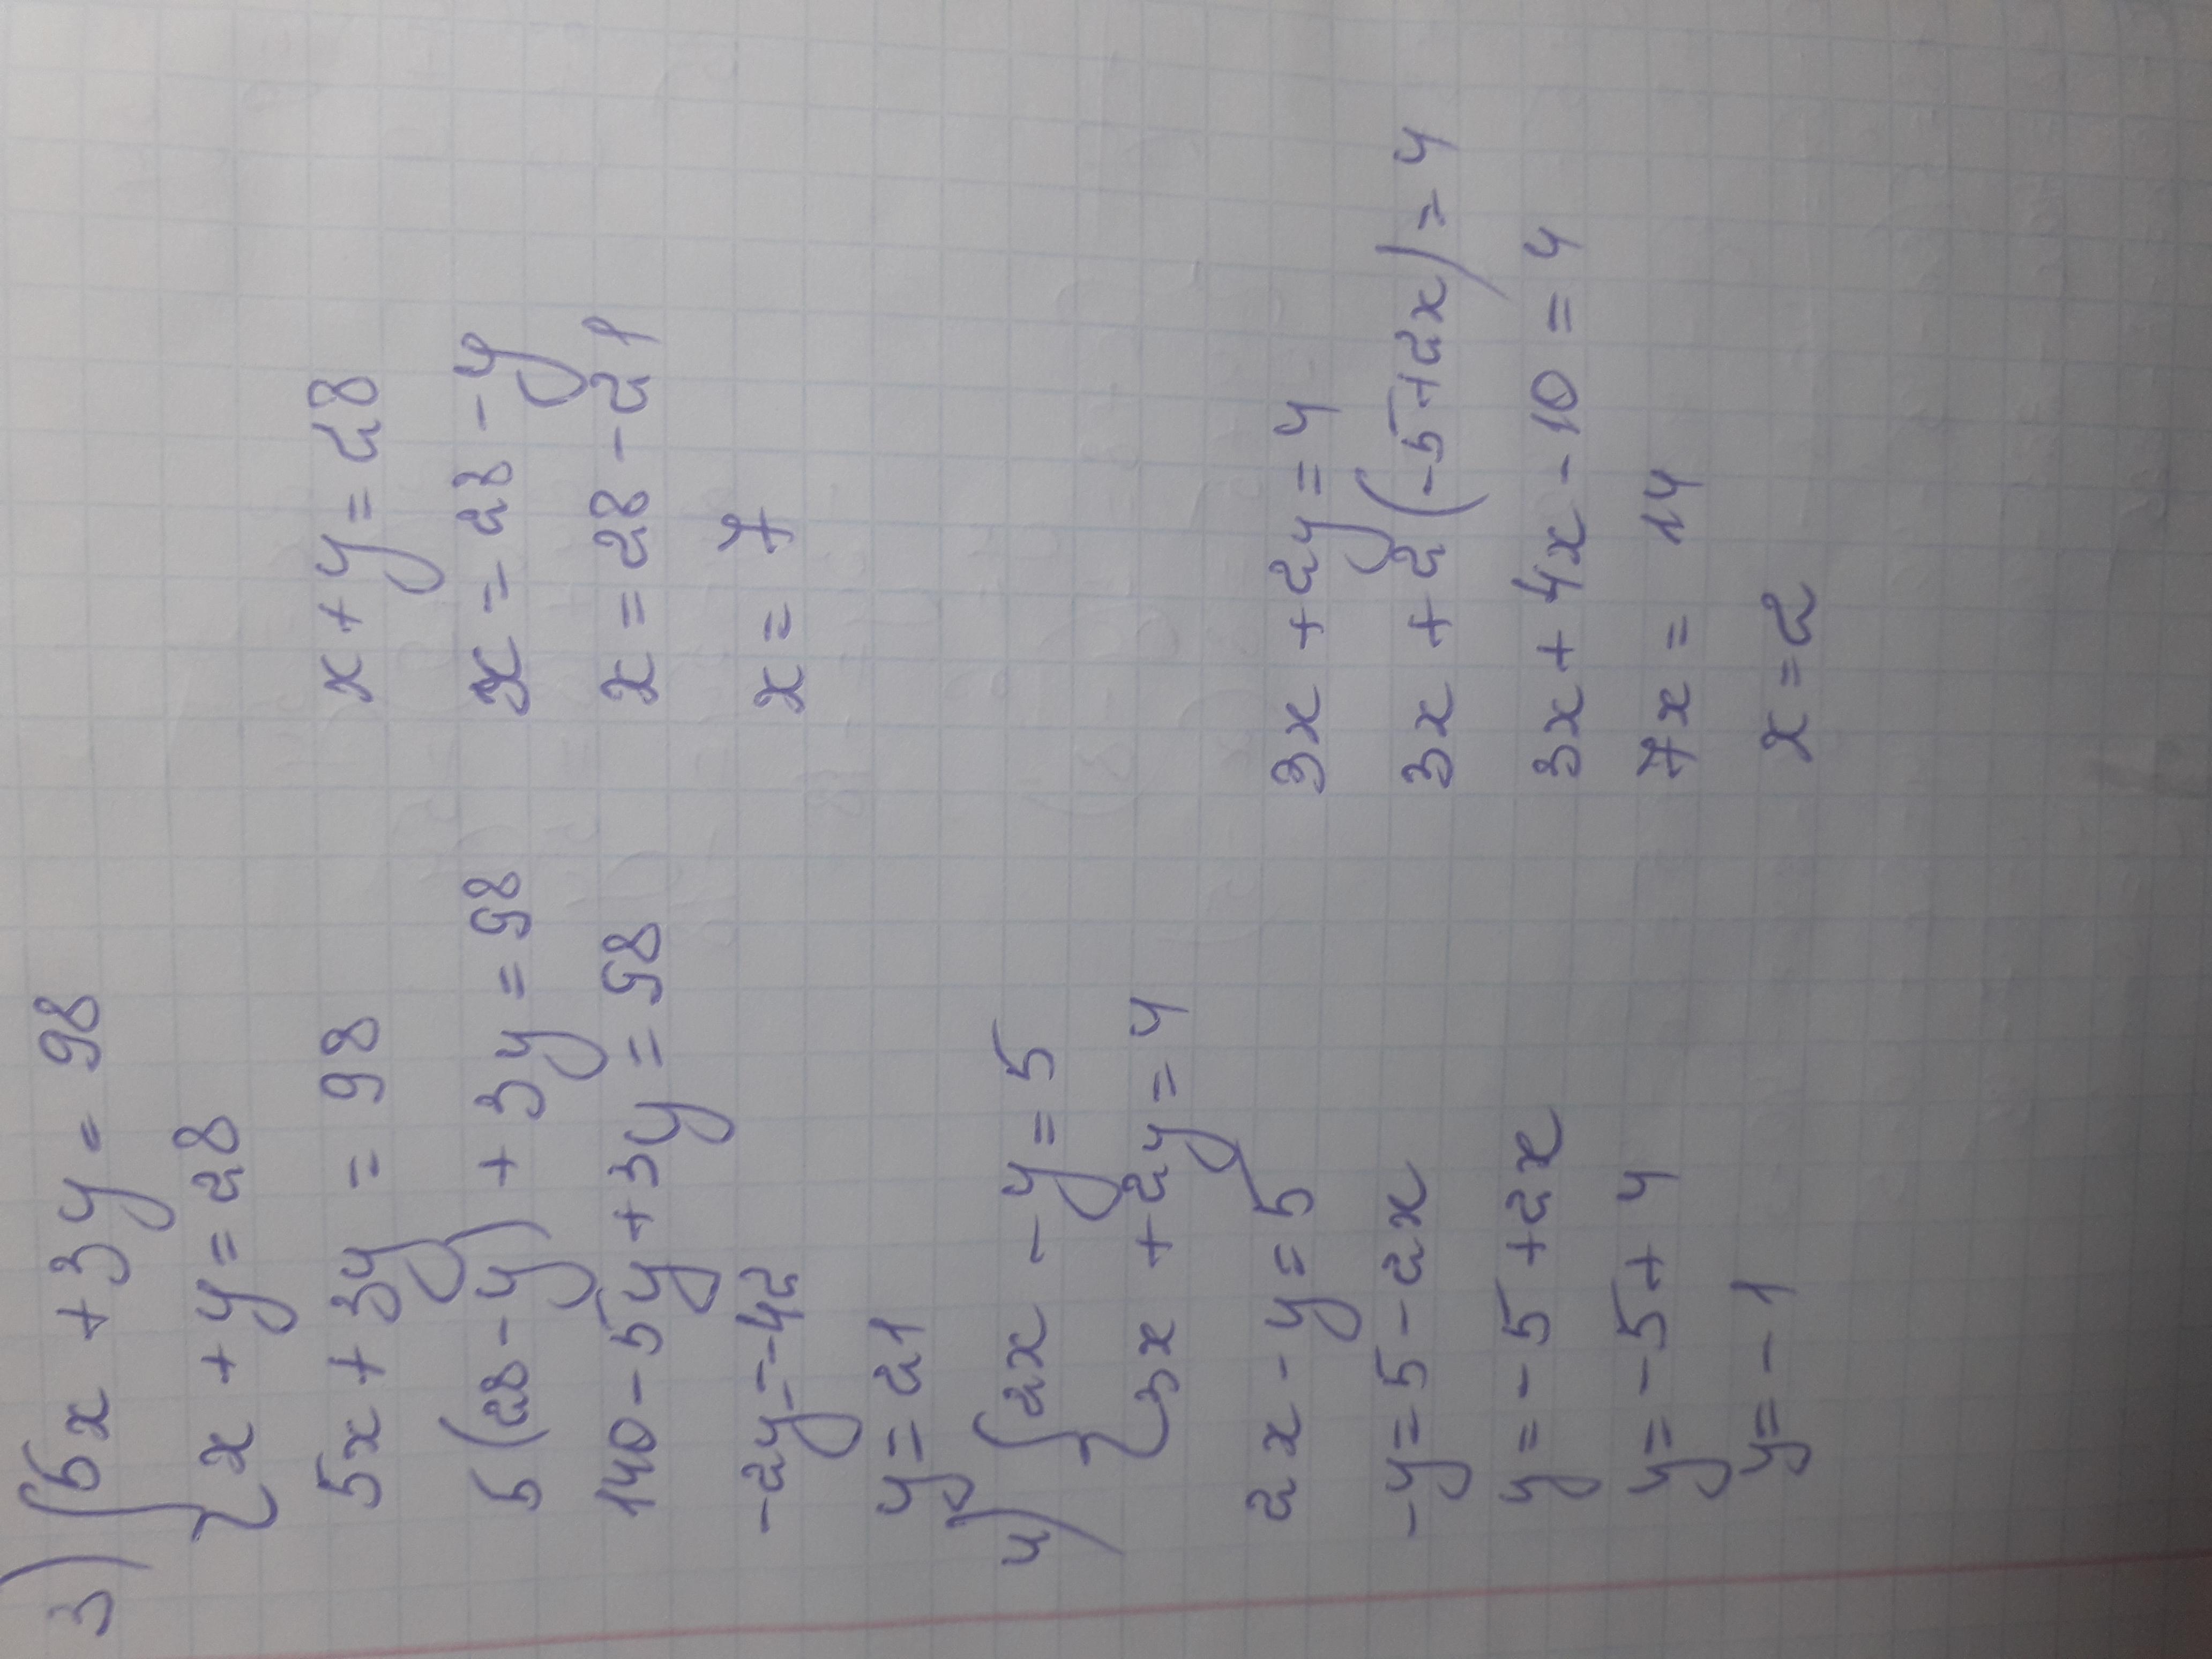 3) { 5x + 3y = 98
{ x + y = 28
5x + 3y = 98
x + y = 28
5 (28 - y) + 3y = 98
x = 28 - y
140 - 5y + 3y = 98
x = 28 - 21
-2y = -42
x = 7
y = 21
4) { 2x - y = 5
{ 3x + 2y = 4
2x - y = 5
3x + 2y = 4
-y = 5 - 2x
3x + 2 (-5 + 2x) = 4
y = -5 + 2x
3x + 4x - 10 = 4
y = -5 + 4
7x = 14
y = -1
x = 2